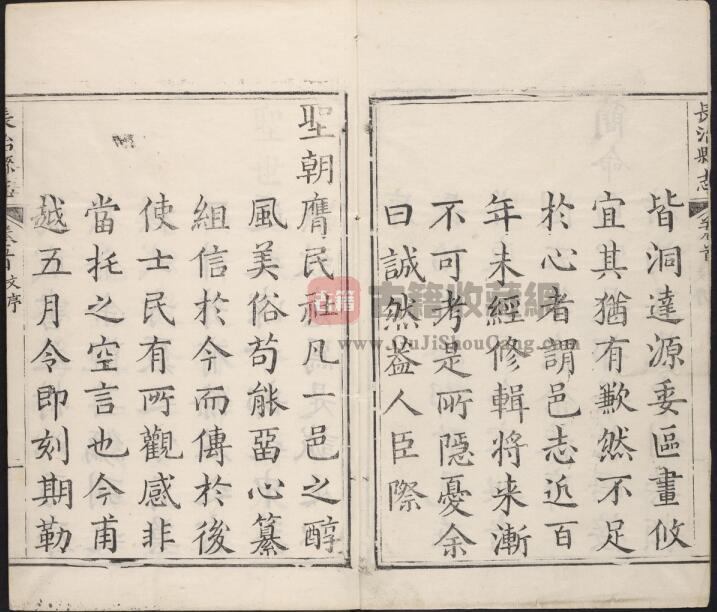 長治縣志
卷首
皆洞達源委區畫攸
宜其猶有歉然不足
於心者謂邑志近百
年未經修輯將來漸
不可考是所隱憂余
曰誠然葢人臣際
聖朝膺民社凡一邑之醇
風美俗苟能畱心纂
組信於今而傳於後
使士民有所觀感非
當托之空言也今甫
越五月令即刻期勒
長治縣志
卷首 文序
一
古籍
古籍收藏網
www.GuJiShouCang.com